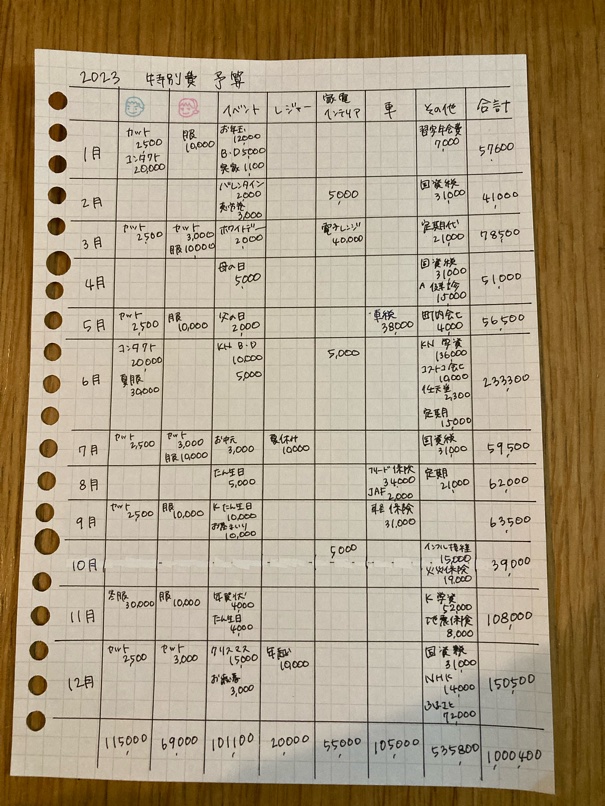 2023 特別費 予算
イベント レジャー 家電 インテリア 車 その他 合計
1月
カット
2500
コンタクト
20,000
服
10,000
お年玉
12000
B・D 5000
実家 1100
7,000
57600
2月
バレンタイン
2000
3,000
5000
国資税
31000
41000
3月
カット
2500
カット
3,000
服 10,000
ホワイトデー
2000
電子レンジ
40,000
定期代
21000
78500
4月
母の日
5,000
国資税
31000
15000
51,000
5月
カット
2,500
服
10,000
父の日
2000
車税
38000
町内会ヒ
4,000
56,500
6月
コンタクト
20,000
夏服
30,000
KN B・D
10,000
5,000
5,000
KN 学資
136000
コストコ会ヒ
10,000
任天堂
2,300
定期
15,000
233300
7月
カット
2,500
カット
3,000
服 10,000
お中元
3,000
夏休み
10000
国資税
31,000
59,500
8月
たん生日
5,000
フリード保険
34000
JAF 2,000
定期
21,000
62000
9月
カット
2500
服
10,000
K たん生日
10,000
お墓まいり
10,000
保険
31,000
63500
10月
5000
インフル接種
15,000
火災保険
19,000
39,000
11月
冬服
30,000
服
10,000
年賀状
4000
たん生日
4000
K 学資
52000
地震保険
8,000
108000
12月
カット
2500
カット
3,000
クリスマス
15000
お歳暮
3,000
年越し
10,000
国資税
31000
NHK
14000
ふるさと
72000
150500
115000 69000 101100 20000 55000 105000 535800 1000400